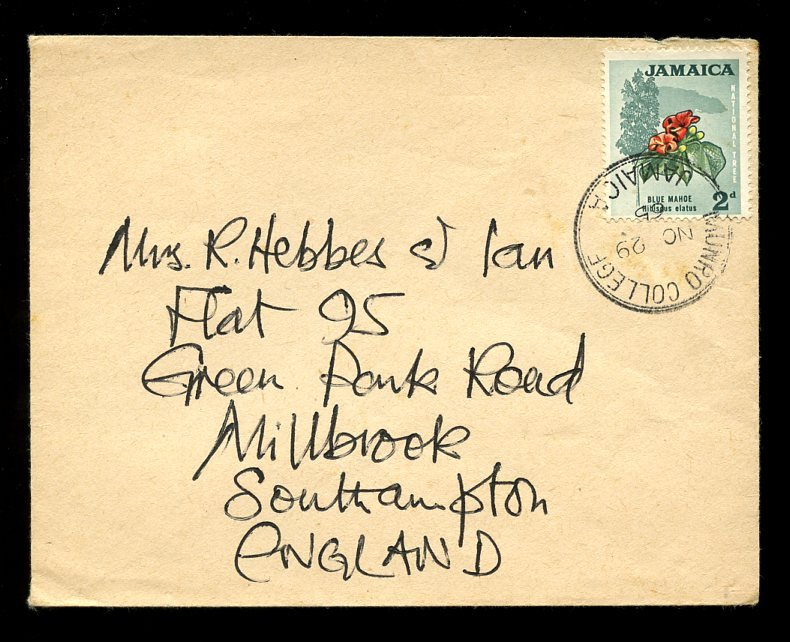 JAMAICA
NATIONAL TREE
BLUE MAHOE
Hibiscus elatus
2d
MUNRO COLLEGE
JAMAICA
NO 29
Mrs. R. Hebbes & Ian
Flat 95
Green Park Road
Millbrook
Southampton
ENGLAND